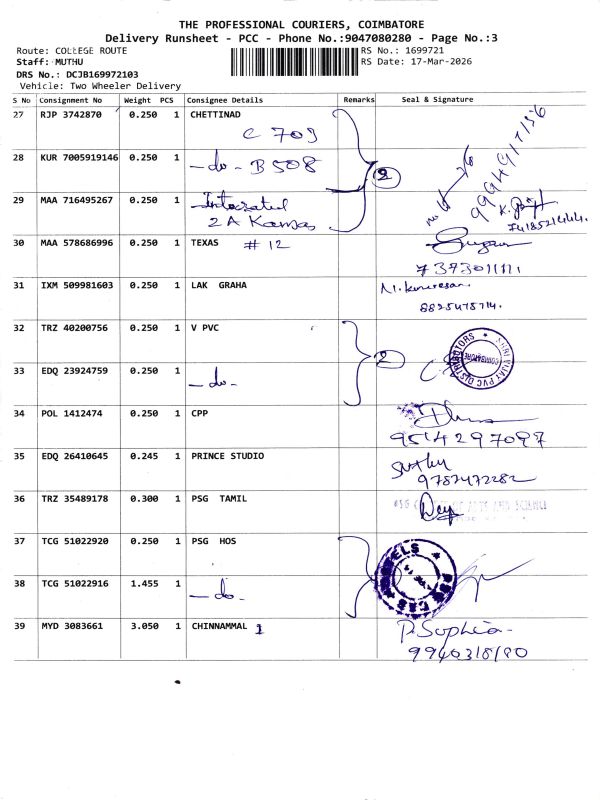 THE PROFESSIONAL COURIERS, COIMBATORE
Delivery Runsheet - PCC - Phone No.:9047080280 - Page No.:3
Route: COLLEGE ROUTE
RS No.: 1699721
Staff: MUTHU
RS Date: 17-Mar-2026
DRS No.: DCJB169972103
Vehicle: Two Wheeler Delivery
S No Consignment No Weight PCS Consignee Details Remarks Seal & Signature
27 RJP 3742870 0.250 1 CHETTINAD
C 703
28 KUR 7005919146 0.250 1 -do- B 508
2
29 MAA 716495267 0.250 1
2A
30 MAA 578686996 0.250 1 TEXAS # 12
31 IXM 509981603 0.250 1 LAK GRAHA
32 TRZ 40200756 0.250 1 V PVC
2
33 EDQ 23924759 0.250 1 -do-
34 POL 1412474 0.250 1 CPP
9514297097
35 EDQ 26410645 0.245 1 PRINCE STUDIO
9787472282
36 TRZ 35489178 0.300 1 PSG TAMIL
37 TCG 51022920 0.250 1 PSG HOS
38 TCG 51022916 1.455 1 -do-
39 MYD 3083661 3.050 1 CHINNAMMAL 1
P. Sophia